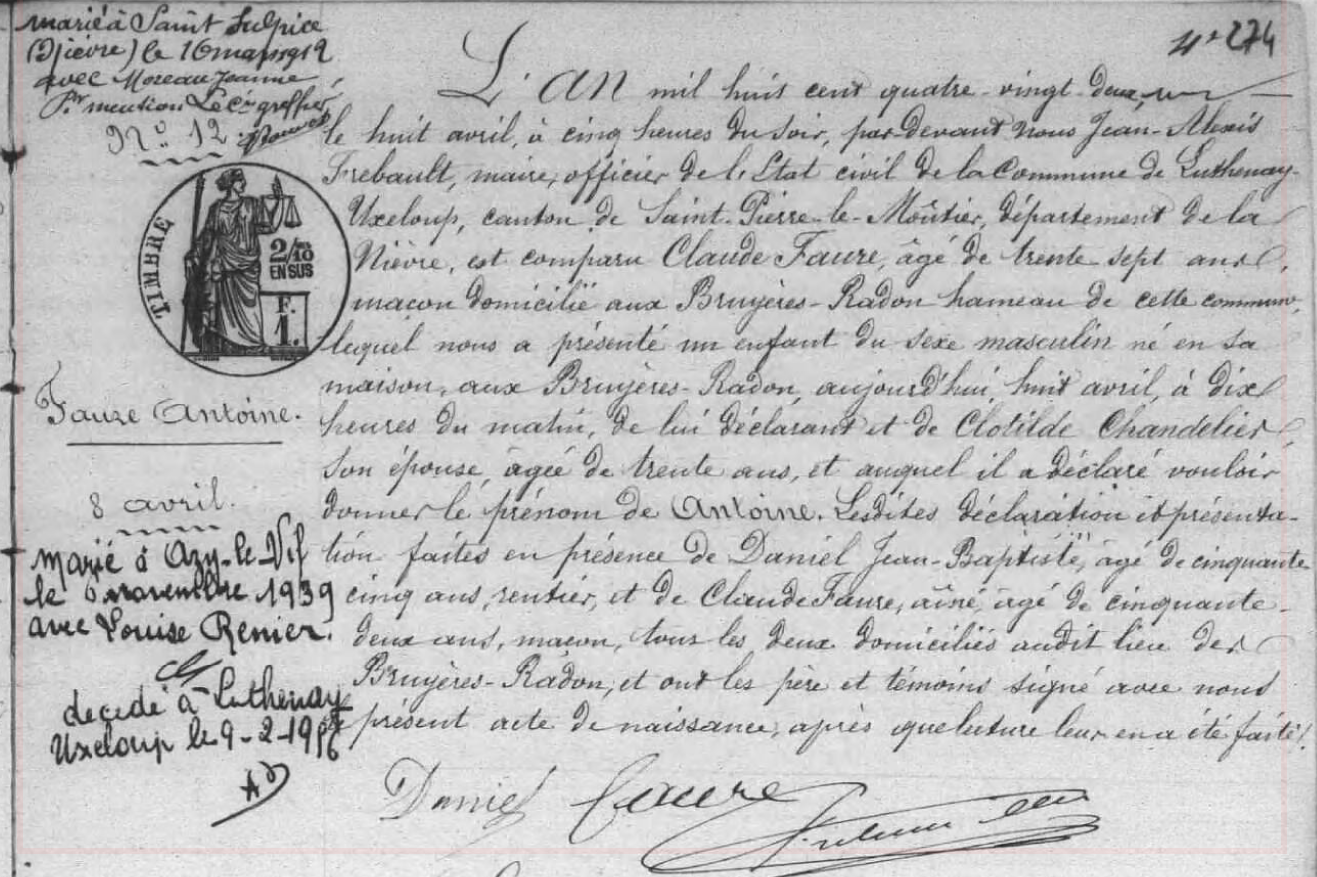 marié à Saint Sulpice
(Nièvre) le 16 mars 1912
avec Moreau Jeanne
Pr mention Le Cis greffier
No. 12.
TIMBRE
2/10
EN SUS
F.
1.
Faure Antoine.
8 avril.
marié à Azy-le-Vif
le novembre 1939
avec Louise Renier.
decedé à Luthenay
Uxeloup le 9-2-1956
No 274
L'AN mil huit cent quatre-vingt-deux,
le huit avril, à cinq heures du soir, par devant nous Jean-Alexis
Frebault, maire, officier de l'État civil de la Commune de Luthenay-
Uxeloup, canton de Saint-Pierre-le-Moûtier, département de la
Nièvre, est comparu Claude Faure, âgé de trente sept ans,
maçon domicilié aux Bruyères-Radon hameau de cette commune,
lequel nous a présenté un enfant du sexe masculin né en sa
maison, aux Bruyères-Radon, aujourd'hui, huit avril, à dix
heures du matin, de lui déclarant et de Clotilde Chandelier,
son épouse, âgée de trente ans, et auquel il a déclaré vouloir
donner le prénom de Antoine. Lesdites déclaration et présenta-
tion faites en présence de Daniel Jean-Baptiste, âgé de cinquante
cinq ans, rentier, et de Claude Faure, aîné, âgé de cinquante-
deux ans, maçon, tous les deux domiciliés audit lieu des
Bruyères-Radon, et ont les père et témoins signé avec nous
le présent acte de naissance, après que lecture leur en a été faite.
Daniel Faure